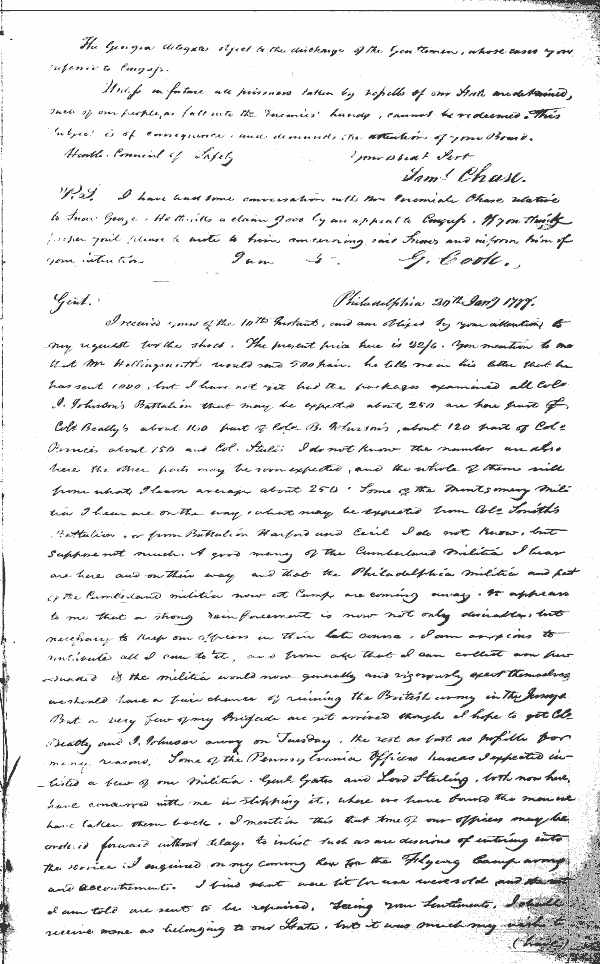 The Georgia delegates object to the discharge of the Gentlemen, whose cases you
referred to Congress.
Unless in future all prisoners taken by vessels of our State are detained,
such of our people, as fall into the Enemies' hands, cannot be redeemed. This
subject is of consequence, and demands the attention of your Board.
Honble. Council of Safety Your Obedt. Servt
Saml. Chase.
P.S. I have had some conversation with Mr. Jeremiah Chase relative
to Snow George. He thinks a claim good by an appeal to Congress. If you think
proper you'l please to write to him concerning said Snow and inform him of
your intention I am G. Cook.
Gent. Philadelphia 20th Jany 1777.
I received yours of the 10th Instant, and am obliged by your attention to
my request for the shoes. The present price here is 22/6. You mention to me
that Mr Hollingsworth would send 500 pair. he tells me in his letter that he
has sent 1000, but I have not yet had the packages examined all Cols
J. Johnson's Battalion that may be expected about 250 are here part of
Cols Beatty's about 160 part of Colo. B. Johnson's, about 120 part of Colo
about 150 and Col. I do not know the number are also
here the other parts may be soon expected, and the whole of them will
from what I learn average about 250. Some of the Montgomery Mili
tia I hear are on the way, what may be expected from Colo. Smith's
Battalion, or from Battalion Harford and Cecil I do not know, but
suppose not much. A good many of the Cumberland Militia I hear
are here and on their way and that the Philadelphia Militia and part
of the Cumberland militia now at Camp are coming away. It appears
to me that a strong reinforcement is now not only desirable, but
necessary to keep our officers in their late ... I am anxious to
contribute all I can to it, and from all that I can collect am per
suaded if the militia would now generally and vigorously exert themselves
we should have a fair chance of ruining the British army in the Jerseys.
But a very few of my Brigade are yet arrived though I hope to get Cols
Beatty and J. Johnson away on Tuesday, the rest as fast as possible for
many reasons. Some of the Pennsylvania Officers have as I expected in-
listed a few of our Militia. Genl. Gates and Lord Sterling, both now here,
have concurred with me in stopping it, where we have found the men we
have taken them back. I mention this that some of our officers may be
ordered forward without delay, to inlist such as are desirous of entering into
the service. I enquired on my coming here for the Flying Camp arms
and accoutrements. I find what were fit for use were sold and the rest
I am told are sent to be repaired. Seeing your Sentiments, I shall
receive none as belonging to our State, but it was much my wish to
(have)